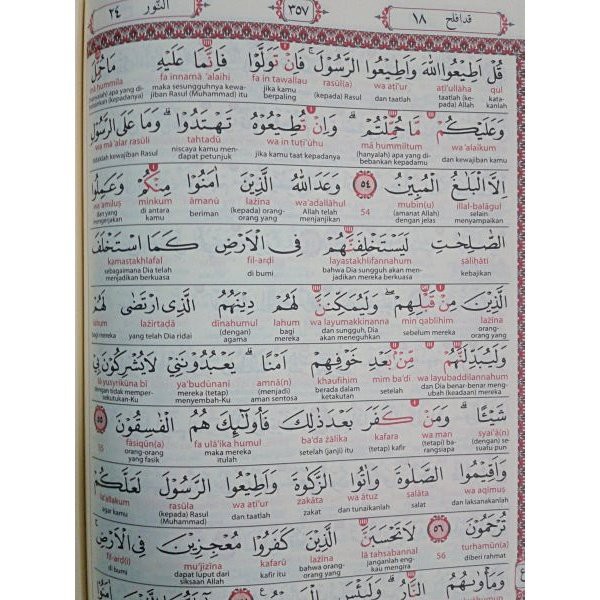 النّور ٢٤
٣٥٧
قد افلح ١٨
قُلْ اَطِيْعُوا اللّٰهَ وَاَطِيْعُوا الرَّسُوْلَۚ فَاِنْ تَوَلَّوْا فَاِنَّمَا عَلَيْهِ مَا حُمِّلَ
qul aṭī'ullāha wa aṭī'ur rasūl(a) fa in tawallau fa innamā 'alaihi mā ḥummila
katakanlah taatlah (kepada) Allah dan taatlah (kepada) Rasul jika kamu berpaling maka sesungguhnya kewajiban Rasul (Muhammad) itu (hanyalah) apa yang dibebankan (kepadanya)
وَعَلَيْكُمْ مَّا حُمِّلْتُمْۗ وَاِنْ تُطِيْعُوْهُ تَهْتَدُوْاۗ وَمَا عَلَى الرَّسُوْلِ
wa 'alaikum mā ḥummiltum wa in tuṭī'ūhu tahtadū wa mā 'alar rasūli
dan kewajiban kamu (hanyalah) apa yang dibebankan kepadamu jika kamu taat kepadanya niscaya kamu mendapat petunjuk kewajiban Rasul
اِلَّا الْبَلٰغُ الْمُبِيْنُ ٥٤ وَعَدَ اللّٰهُ الَّذِيْنَ اٰمَنُوْا مِنْكُمْ وَعَمِلُوا
illal-balāgul mubīn(u) 54 wa'adallāhul lażīna āmanū minkum wa 'amiluṣ
selain menyampaikan (amanat Allah) dengan jelas Allah telah menjanjikan (kepada) orang-orang yang beriman di antara kamu dan yang mengerjakan
الصّٰلِحٰتِ لَيَسْتَخْلِفَنَّهُمْ فِى الْاَرْضِ كَمَا اسْتَخْلَفَ
ṣāliḥāti layastakhlifannahum fil-arḍi kamastakhlafal
kebajikan bahwa Dia sungguh akan menjadikan mereka berkuasa di bumi sebagaimana Dia telah menjadikan berkuasa
الَّذِيْنَ مِنْ قَبْلِهِمْۖ وَلَيُمَكِّنَنَّ لَهُمْ دِيْنَهُمُ الَّذِى ارْتَضٰى لَهُمْ
lażīna min qablihim wa layumakkinanna lahum dīnahumul lażirtaḍā lahum
orang-orang yang sebelum mereka dan sungguh, Dia akan meneguhkan bagi mereka (dengan) agama yang telah Dia ridai bagi mereka
وَلَيُبَدِّلَنَّهُمْ مِّنْۢ بَعْدِ خَوْفِهِمْ اَمْنًاۗ يَعْبُدُوْنَنِيْ لَا يُشْرِكُوْنَ بِيْ
wa layubaddilannahum mim ba'di khaufihim amnā(n) ya'budūnanī lā yusyrikūna bī
dan Dia benar-benar mengubah (keadaan) mereka setelah berada dalam ketakutan (menjadi) aman sentosa mereka (tetap) menyembah-Ku dengan tidak mempersekutukan-Ku
شَيْـًٔاۗ وَمَنْ كَفَرَ بَعْدَ ذٰلِكَ فَاُولٰۤىِٕكَ هُمُ الْفٰسِقُوْنَ ٥٥
syai'ā(n) wa man kafara ba'da żālika fa ulā'ika humul fāsiqūn(a) 55
(dengan) sesuatu pun (tetapi) barangsiapa (tetap) kafir setelah (janji) itu maka mereka itulah orang-orang yang fasik
وَاَقِيْمُوا الصَّلٰوةَ وَاٰتُوا الزَّكٰوةَ وَاَطِيْعُوا الرَّسُوْلَ لَعَلَّكُمْ
wa aqīmuṣ ṣalāta wa ātuz zakāta wa aṭī'ur rasūla la'allakum
dan laksanakanlah salat dan tunaikanlah zakat dan taatlah (kepada) Rasul (Muhammad) agar kamu
تُرْحَمُوْنَ ٥٦ لَا تَحْسَبَنَّ الَّذِيْنَ كَفَرُوْا مُعْجِزِيْنَ فِى الْاَرْضِۚ
turḥamūn(a) 56 lā taḥsabannal lażīna kafarū mu'jizīna fil-arḍ(i)
diberi rahmat janganlah engkau mengira bahwa orang-orang kafir itu dapat luput dari siksaan Allah di bumi
وَمَأْوٰىهُمُ النَّارُۗ وَلَبِئْسَ